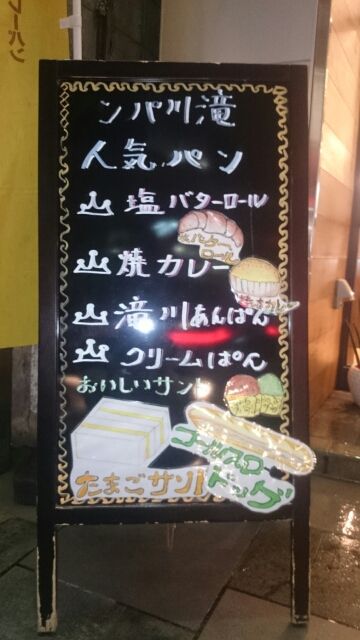 レーパン
ンパ川滝
人気パン
塩バターロール
塩バターロール
焼カレー
滝川あんぱん
クリームぱん
おいしいサンド
コールスロー
ドッグ
たまごサンド